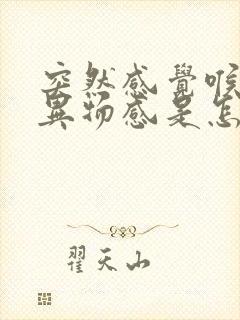 突然感覺喉
異物感是怎
翟天山